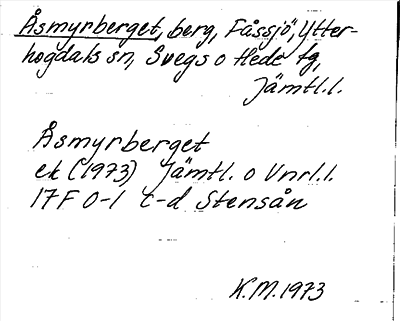 Åsmyrberget, berg, Fåssjö, Ytter-
hogdals sn, Svegs o Hede tg,
Jämtl.l.
Åsmyrberget
ek (1973) Jämtl. o Vnrl.l.
17F 0-1 c-d Stensån
K.M.1973